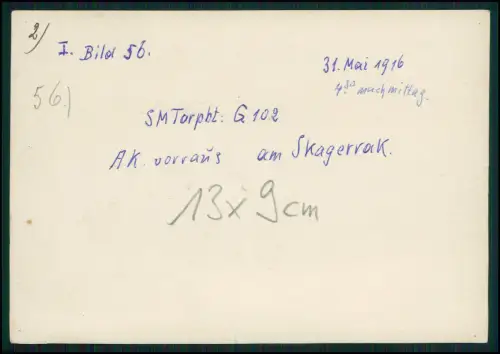 2)
I. Bild 56.
31. Mai 1916
56.)
4.30 nachmittag.
SMTorpbt: G 102
AK. vorraus am Skagerrak.
13x9cm